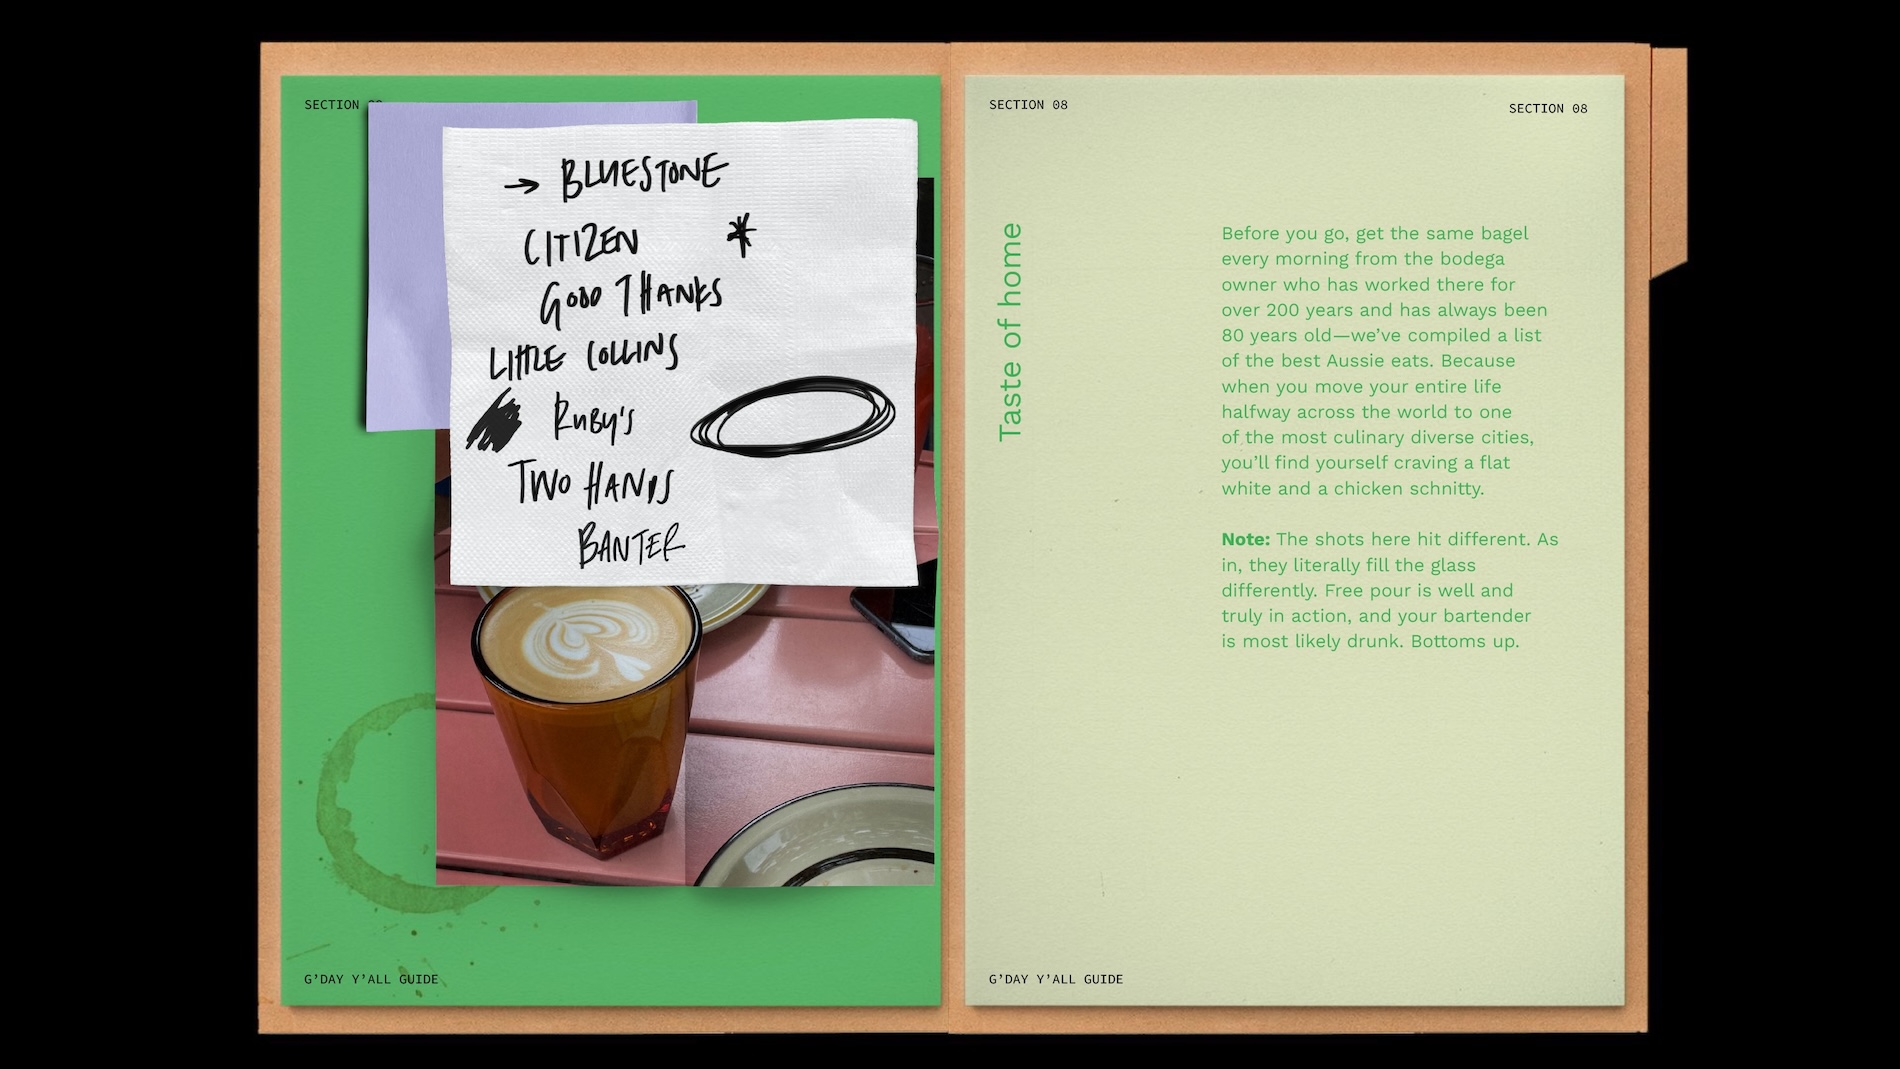 SECTION
→ BLUESTONE
CITIZEN *
GOOD THANKS
LITTLE COLLINS
RUBY'S
TWO HANDS
BANTER
G’DAY Y’ALL GUIDE
SECTION 08
SECTION 08
Taste of home
Before you go, get the same bagel
every morning from the bodega
owner who has worked there for
over 200 years and has always been
80 years old—we’ve compiled a list
of the best Aussie eats. Because
when you move your entire life
halfway across the world to one
of the most culinary diverse cities,
you’ll find yourself craving a flat
white and a chicken schnitty.
Note: The shots here hit different. As
in, they literally fill the glass
differently. Free pour is well and
truly in action, and your bartender
is most likely drunk. Bottoms up.
G’DAY Y’ALL GUIDE